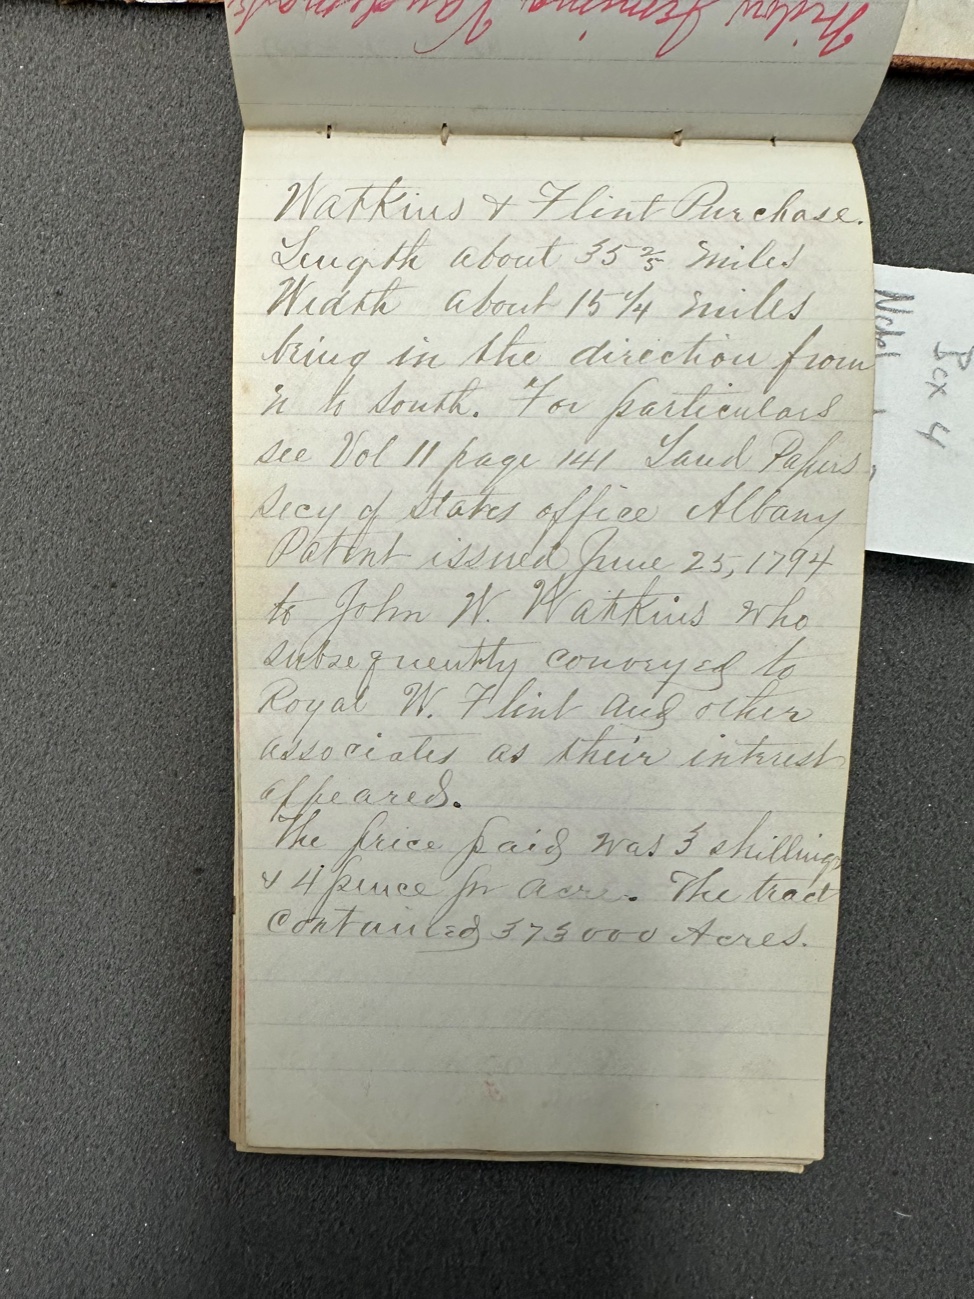 Watkins & Flint Purchase.
Length about 35 2/5 miles
Width about 15 1/4 miles
being in the direction from
n to south. For particulars
see Vol 11 page 141 Land Papers,
Secy of States office Albany
Patent issued June 25, 1794
to John W. Watkins who
subsequently conveyed to
Royal W. Flint and other
associates as their interest
appeared.
The price paid was 3 shillings
& 4 pence pr acre. The tract
contained 373000 Acres.
Box 4